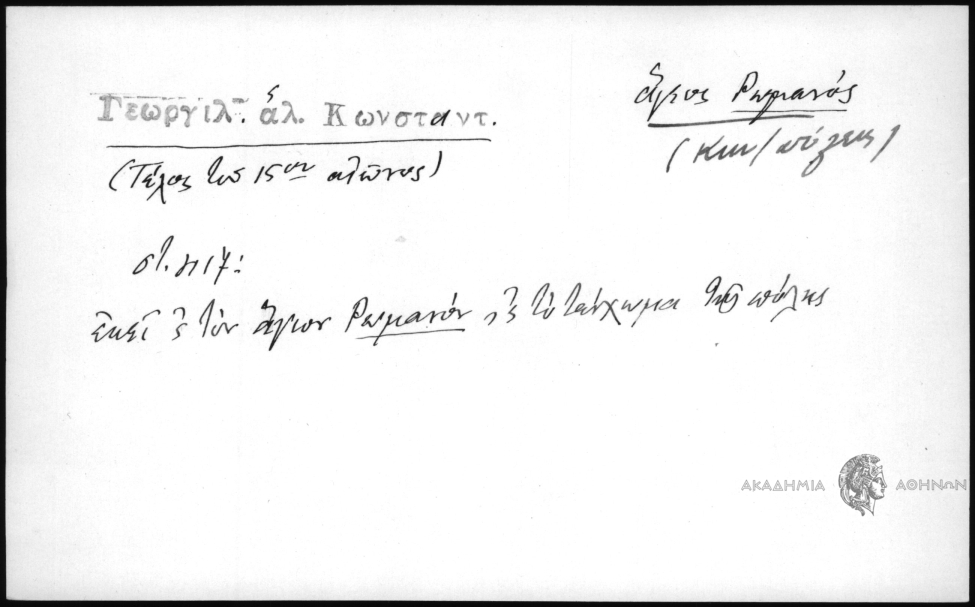 Γεωργιλ. ἁλ. Κωνσταντ.
ἅγιος Ρωμανός
(Κων/πόλεως)
(Τέλος τοῦ 15ου αἰῶνος)
στ.
ἐκεῖ ς τὸν ἅγιον Ρωμανόν, ς τὸ τείχωμα τῆς πόλης
ΑΚΑΔΗΜΙΑ ΑΘΗΝΩΝ